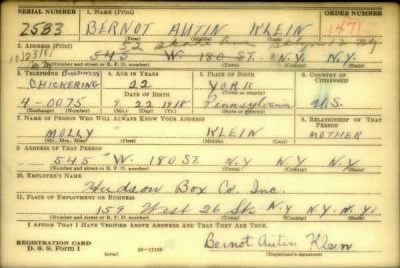 SERIAL NUMBER 1. NAME (Print) ORDER NUMBER
2583 BERNOT AUTIN KLEIN 1471
2. ADDRESS (Print)
545 W. 180 ST. N.Y. N.Y.
(Number and street or R. F. D. number) (Town) (County) (State)
3. TELEPHONE 4. AGE IN YEARS 5. PLACE OF BIRTH 6. COUNTRY OF CITIZENSHIP
CHICKERING 22 YORK
DATE OF BIRTH
4-0075 9 22 1918 Pennsylvania U.S.
(Exchange) (Number) (Mo.) (Day) (Yr.) (State or country)
7. NAME OF PERSON WHO WILL ALWAYS KNOW YOUR ADDRESS 8. RELATIONSHIP OF THAT PERSON
MOLLY KLEIN MOTHER
(Mr., Mrs., Miss) (First) (Middle) (Last)
9. ADDRESS OF THAT PERSON
545 W. 180 ST. N.Y N.Y N.Y
(Number and street or R. F. D. number) (Town) (County) (State)
10. EMPLOYER'S NAME
Hudson Box Co. Inc.
11. PLACE OF EMPLOYMENT OR BUSINESS
159 West 26 St. N.Y. N.Y. N.Y.
(Number and street or R. F. D. number) (Town) (County) (State)
I AFFIRM THAT I HAVE VERIFIED ABOVE ANSWERS AND THAT THEY ARE TRUE.
REGISTRATION CARD
D. S. S. Form 1 (over) Bernot Autin Klein
(Registrant's signature)